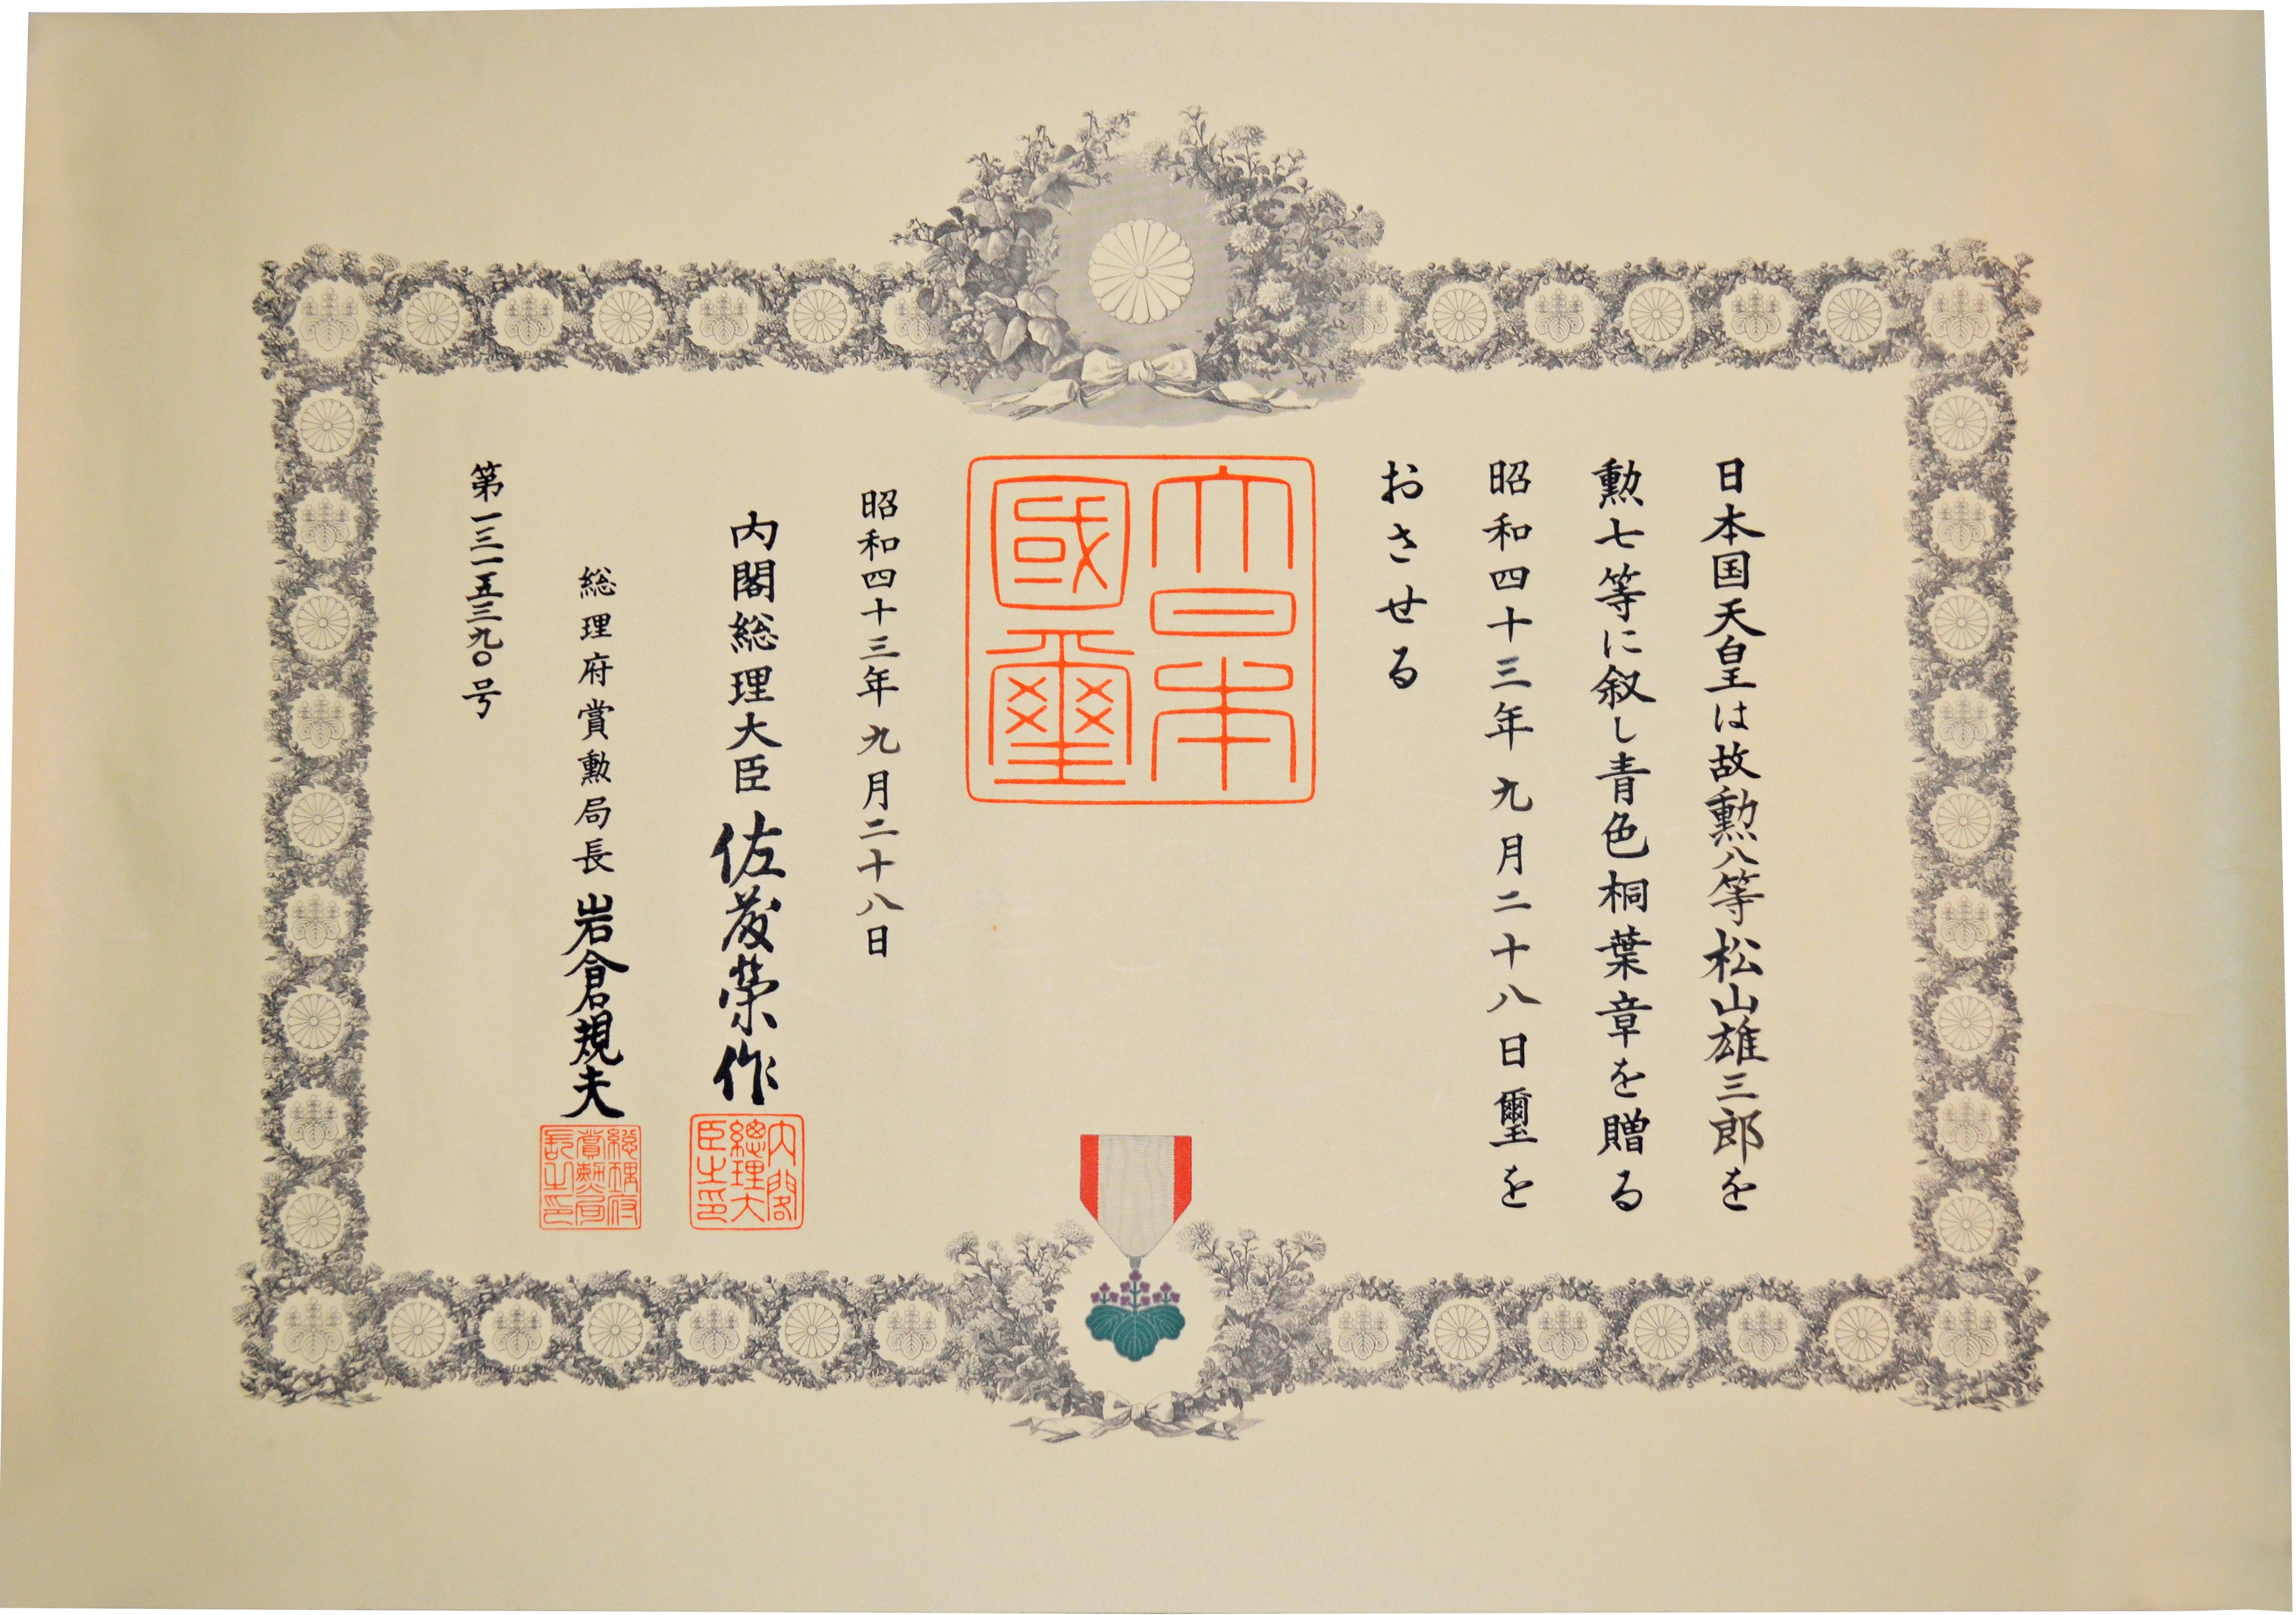 日本国天皇は故勲八等松山雄三郎を
勲七等に叙し青色桐葉章を贈る
昭和四十三年九月二十八日璽を
おさせる
大日本
國璽
昭和四十三年九月二十八日
内閣総理大臣佐藤榮作
内閣
總理大
臣之印
総理府賞勲局長岩倉規夫
総理府
賞勲局
長之印
第一三一五三九〇号